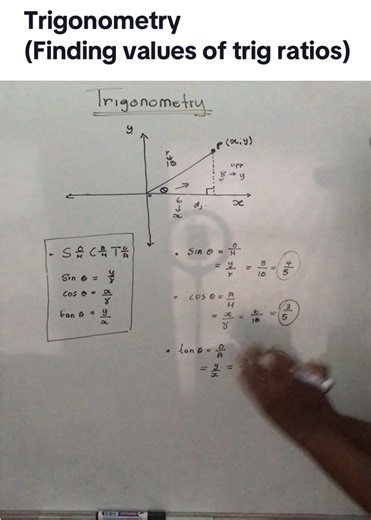 Trigonometry
(Finding values of trig ratios)
Trigonometry
y
P (x,y)
r
10
opp
y
θ
6
x
x
• S O/H C A/H T O/A
Sin θ = y/r
cos θ = x/r
tan θ = y/x
• Sin θ = O/H
= y/r = 8/10 = 4/5
• cos θ = A/H
= x/r = 6/10 = 3/5
• tan θ = O/A
= y/x =